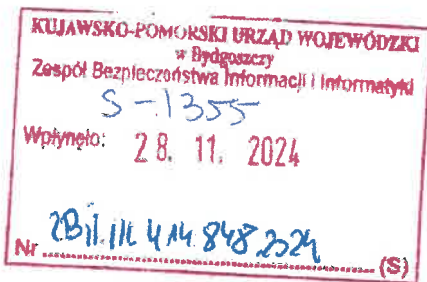 KUJAWSKO-POMORSKI URZĄD WOJEWÓDZKI
w Bydgoszczy
Zespół Bezpieczeństwa Informacji i Informatyki
S-1355
Wpłynęło: 28. 11. 2024
Nr ZBiI.III.414.848.2024 (S)